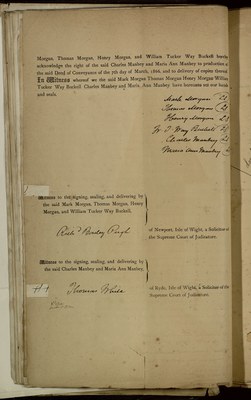 Morgan, Thomas Morgan, Henry Morgan, and William Tucker Way Buckell hereby
acknowledge the right of the said Charles Manbey and Maria Ann Manbey to production of
the said Deed of Conveyance of the 7th day of March, 1806, and to delivery of copies thereof
In Witness whereof we the said Mark Morgan Thomas Morgan Henry Morgan William
Tucker Way Buckell Charles Manbey and Maria Ann Manbey have hereunto set our hands
and seals.
Mark Morgan
Thomas Morgan
Henry Morgan
W. T. Way Buckell
Charles Manbey
Maria Ann Manbey
Witness to the signing, sealing, and delivering by
the said Mark Morgan, Thomas Morgan, Henry
Morgan, and William Tucker Way Buckell.
of Newport, Isle of Wight, a Solicitor of
the Supreme Court of Judicature.
Witness to the signing, sealing, and delivering by
the said Charles Manbey and Maria Ann Manbey
Thomas White
of Ryde, Isle of Wight, a Solicitor of the
Supreme Court of Judicature.